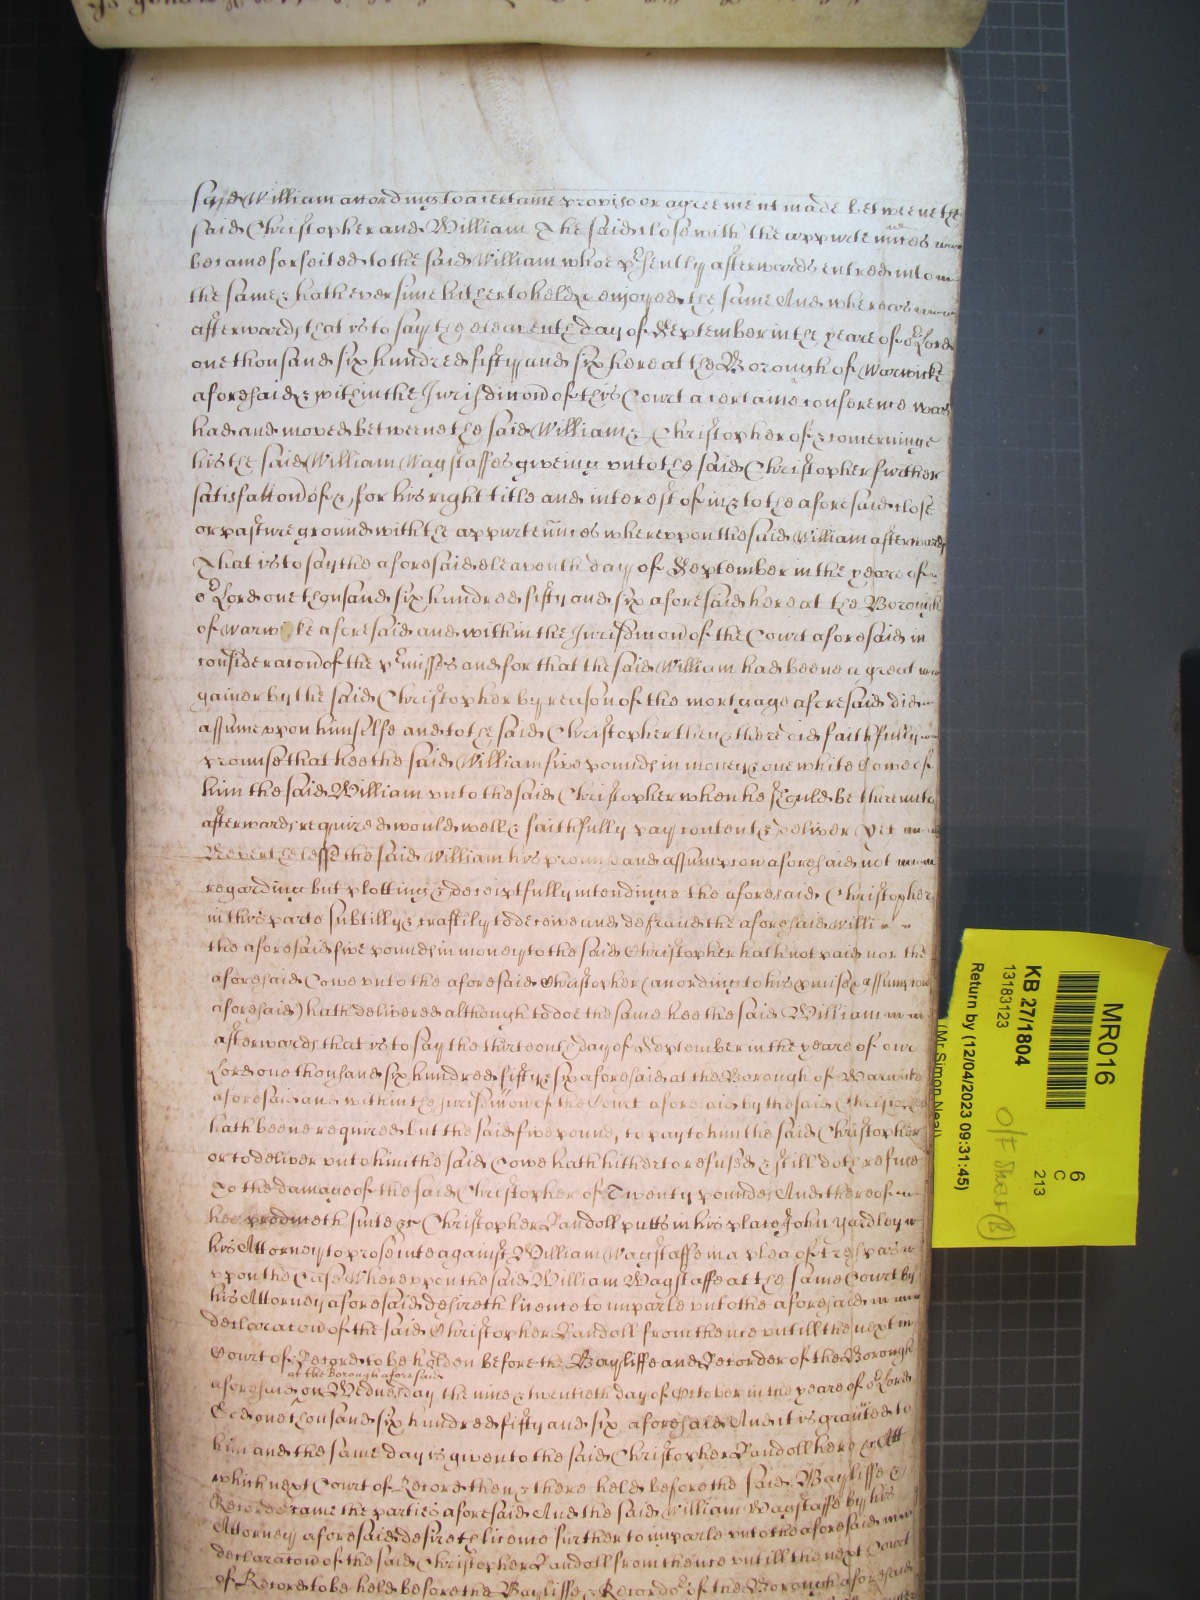 said William according to a certaine proviso or agreement made betweene the
said Christopher and William The said close with the appurtenñces
became forfeited to the said William whoe p'sently afterwards entred into
the same & hath ever since hitherto held & enjoyed the same And whereas
afterwards that is to say the eleaventh day of September in the yeare of o'r Lord
one thousand six hundred fifty and six here at the Borough of Warwicke
aforesaid & within the Jurisdiccon of this Court a certaine conference was
had and moved betweene the said William & Christopher of & concerninge
his the said William Wagstaffes giveing unto the said Christopher further
satisfaccon of & for his right title and interest of in & to the aforesaid close
or pasture ground with the appurtenñces whereuppon the said William afterwards
That is to say the aforesaid eleaventh day of September in the yeare of
o'r Lord one thousand six hundred fifty and six aforesaid here at the Borough
of Warwicke aforesaid and within the Jurisdiccon of the Court aforesaid in
consideracon of the p'misses and for that the said William had beene a great
gainer by the said Christopher by reason of the mortgage aforesaid did
assume upon himselfe and to the said Christopher then & there did faithfully
promise that hee the said William five pounds in money & one white Cowe of
him the said William unto the said Christopher when he should be thereunto
afterwards required would well & faithfully pay content & deliver Yet
Neverthelesse the said William his promise and assumpcon aforesaid not
regarding but plotting & deceiptfully intendinge the aforesaid Christopher
in this parte subtilly & craftily to deceive and defraud the aforesaid Willi
the aforesaid five pounds in money to the said Christopher hath not paid nor the
aforesaid Cowe unto the aforesaid Christopher (according to his p'mise & assumpcon
aforesaid) hath delivered although to doe the same hee the said William
afterwards that is to say the thirteenth day of September in the yeare of our
Lord one thousand six hundred fifty & six aforesaid at the Borough of Warwicke
aforesaid and within the Jurisdiccon of the Court aforesaid by the said Christopher
hath beene required but the said five pounds to pay to him the said Christopher
or to deliver unto him the said Cowe hath hitherto refused & still doth refuse
To the damage of the said Christopher of Twenty pounds And thereof
hee produceth suite &c Christopher Randoll putts in his place John Yardley
his Attorney to prosecute against William Wagstaffe in a plea of trespas
upon the Case Whereuppon the said William Wagstaffe at the same Court by
his Attorney aforesaid desireth licence to imparle unto the aforesaid
declaracon of the said Christopher Randoll from thence untill the next
Court of Record to be holden before the Bayliffe and Recorder of the Borough
at the Borough aforesaid
aforesaid on Wednesday the nine & twentieth day of October in the yeare of o'r Lord
God one thousand six hundred fifty and six aforesaid And it is graunted to
him and the same day is given to the said Christopher Randoll here &c Att
which next Court of Record then & there held before the said Bayliffe &
Recorder came the parties aforesaid And the said William Wagstaffe by his
Attorney aforesaid desireth licence further to imparle unto the aforesaid
declaracon of the said Christopher Randoll from thence untill the next Court
of Record to be held before the Bayliffe & Recordo'r of the Borough aforesaid
MR016
6
C
213
KB 27/1804
13183123
Return by (12/04/2023 09:31:45)
(Mr Simon Neal)